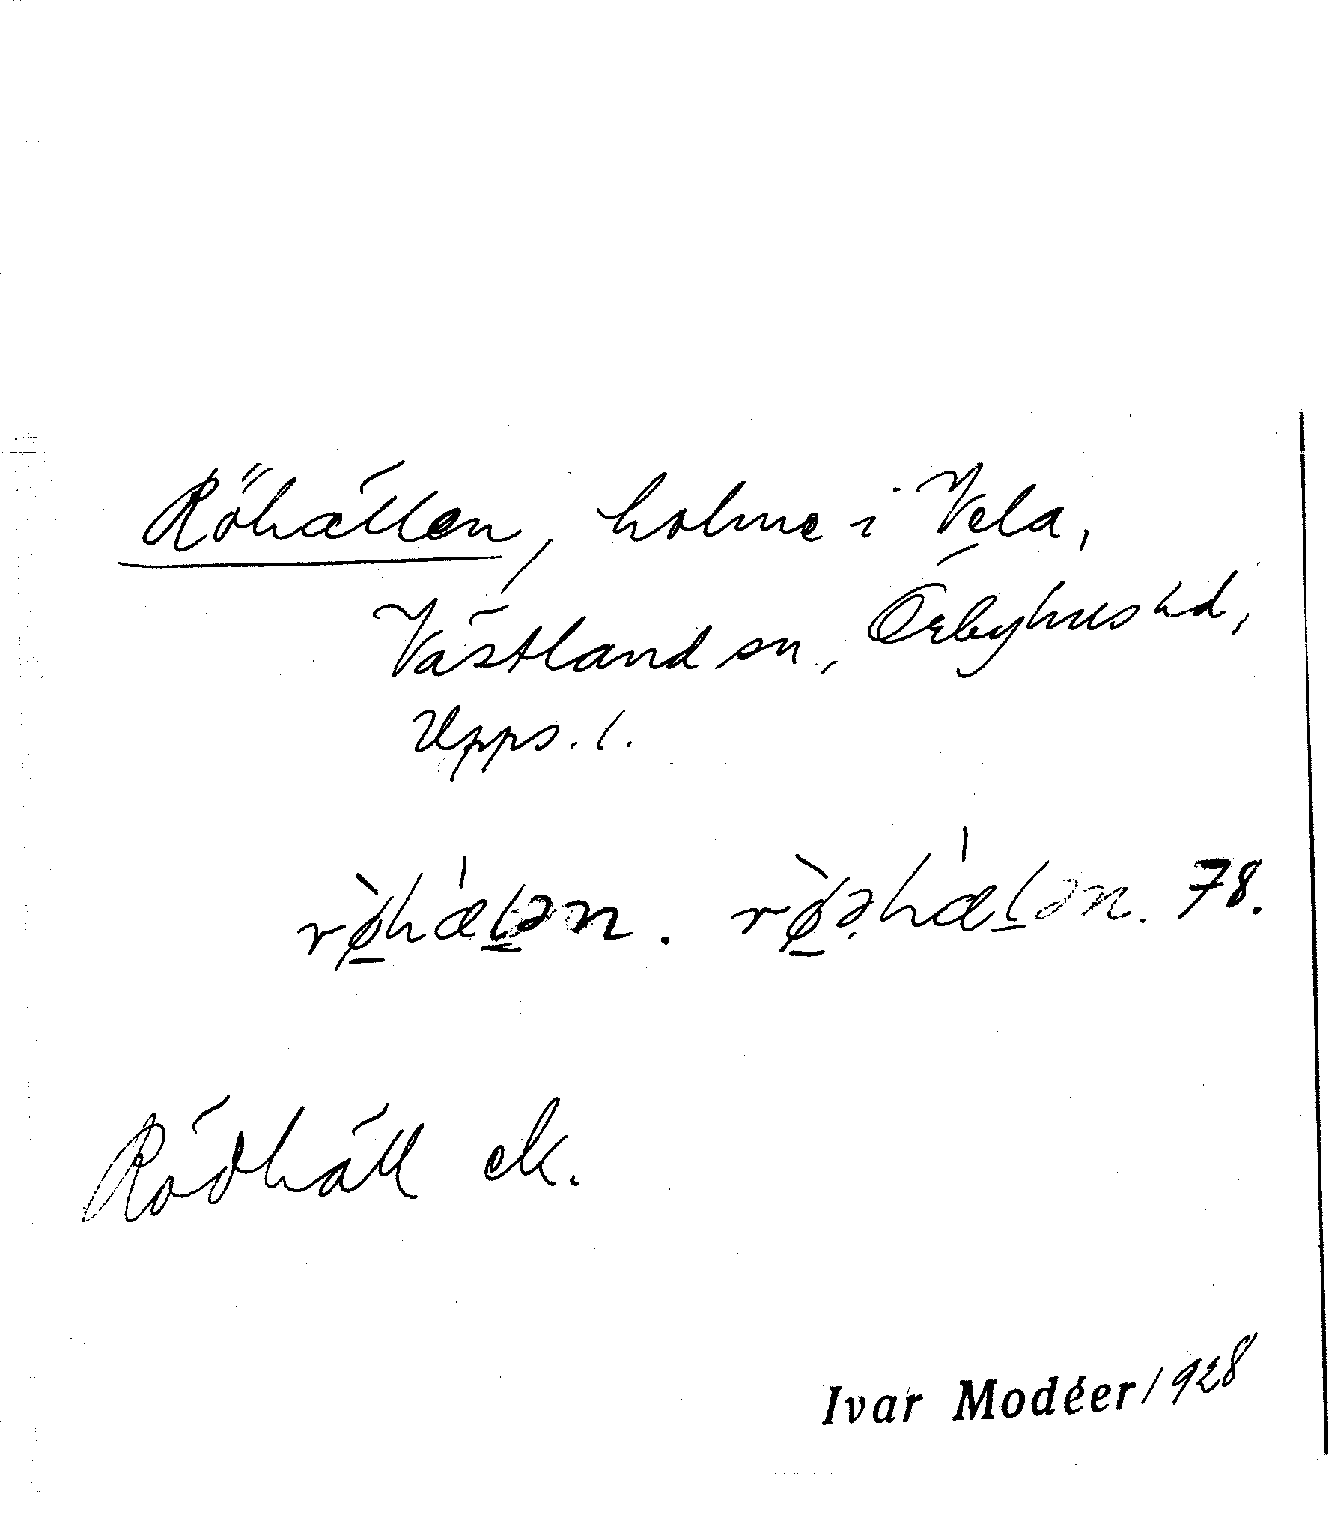 Röhällen, holme i Vela,
Västland sn, Örbyhus hd,
Upps. l.
rø̀hælən. rø̀əhælən. 78.
Rödhäll ek.
Ivar Modéer 1928